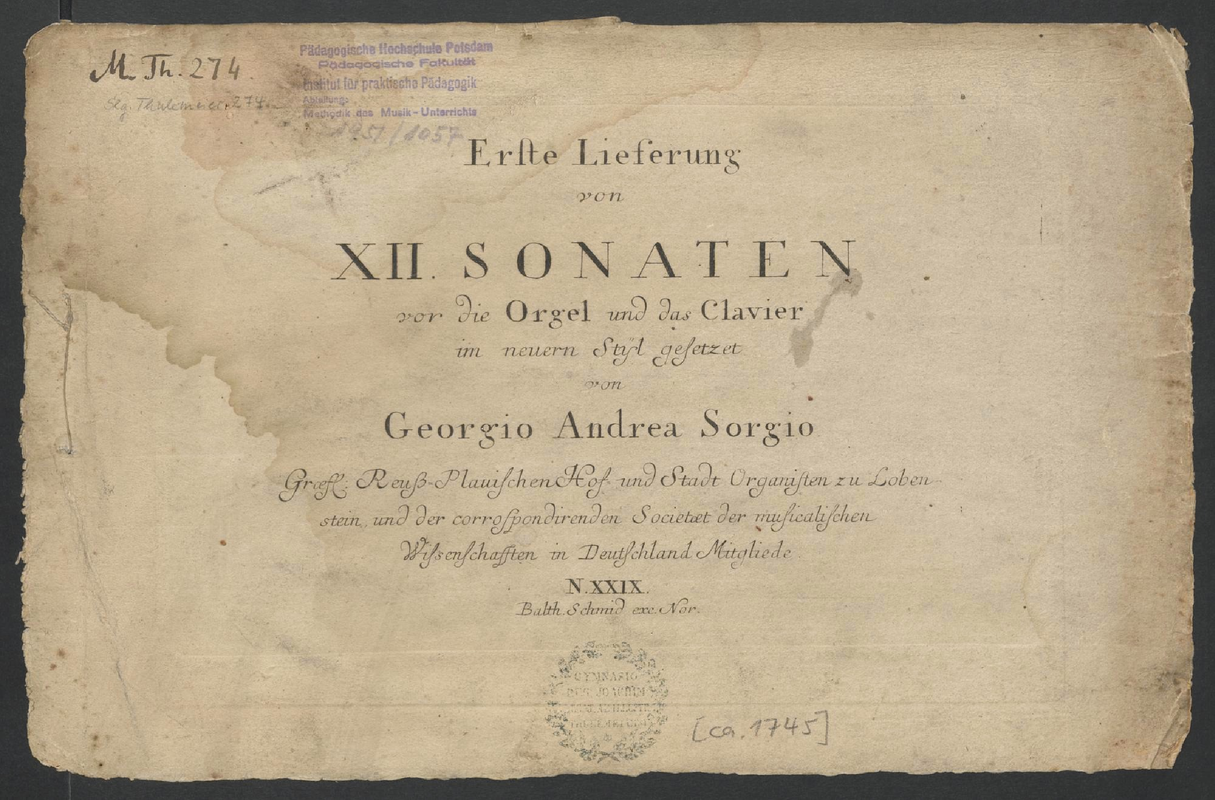 M. Th. 274.
Slg. Thulemeier 274
Pädagogische Hochschule Potsdam
Pädagogische Fakultät
Institut für praktische Pädagogik
Abteilung:
Methodik des Musik-Unterrichts
1951/1057
Erſte Lieferung
von
XII. SONATEN
vor die Orgel und das Clavier
im neuern Styl geſetzet
von
Georgio Andrea Sorgio
Græfl: Reuß-Plauiſchen Hof- und Stadt Organiſten zu Loben-
stein, und der corroſpondirenden Societæt der muſicaliſchen
Wiſsenſchafften in Deutſchland Mitgliede.
N. XXIX.
Balth. Schmid exc. Nor.
GYMNASIO
[ca. 1745]